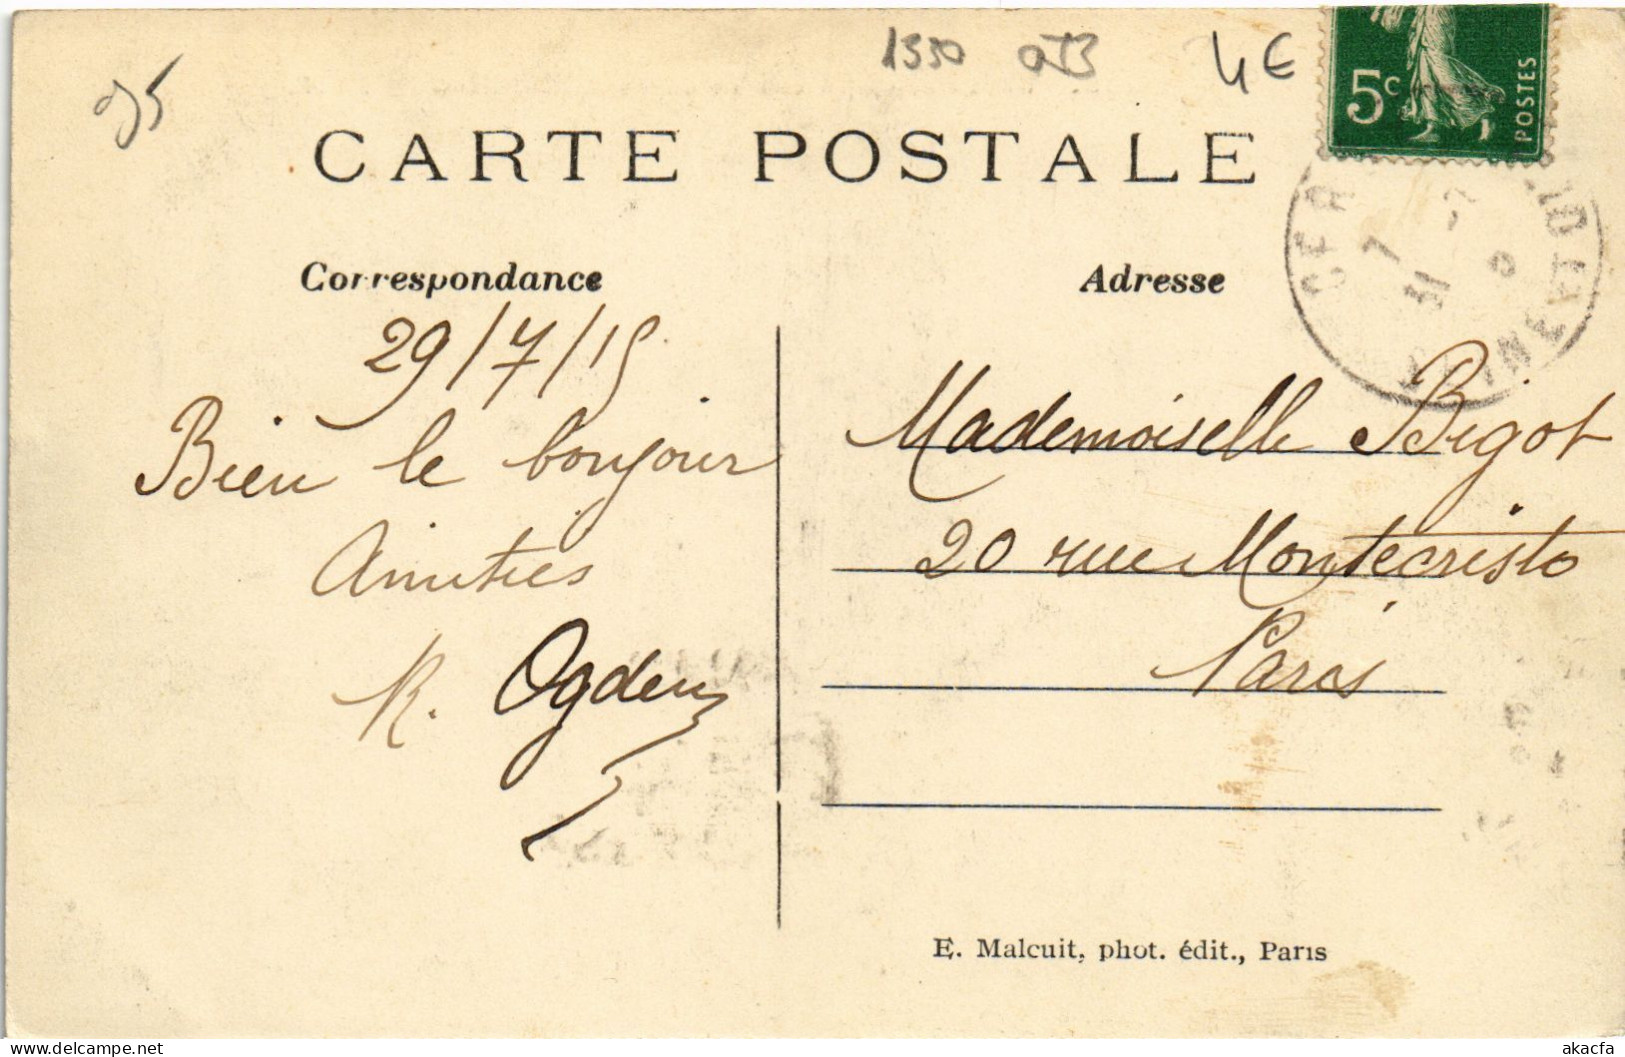 95
1330
4€
5c
POSTES
CARTE POSTALE
Correspondance
Adresse
29/7/15
Bien le bonjour
Amitiés
R. Ogden
Mademoiselle Bigot
20 rue Montecristo
Paris
E. Malcuit, phot. édit., Paris
akacfa